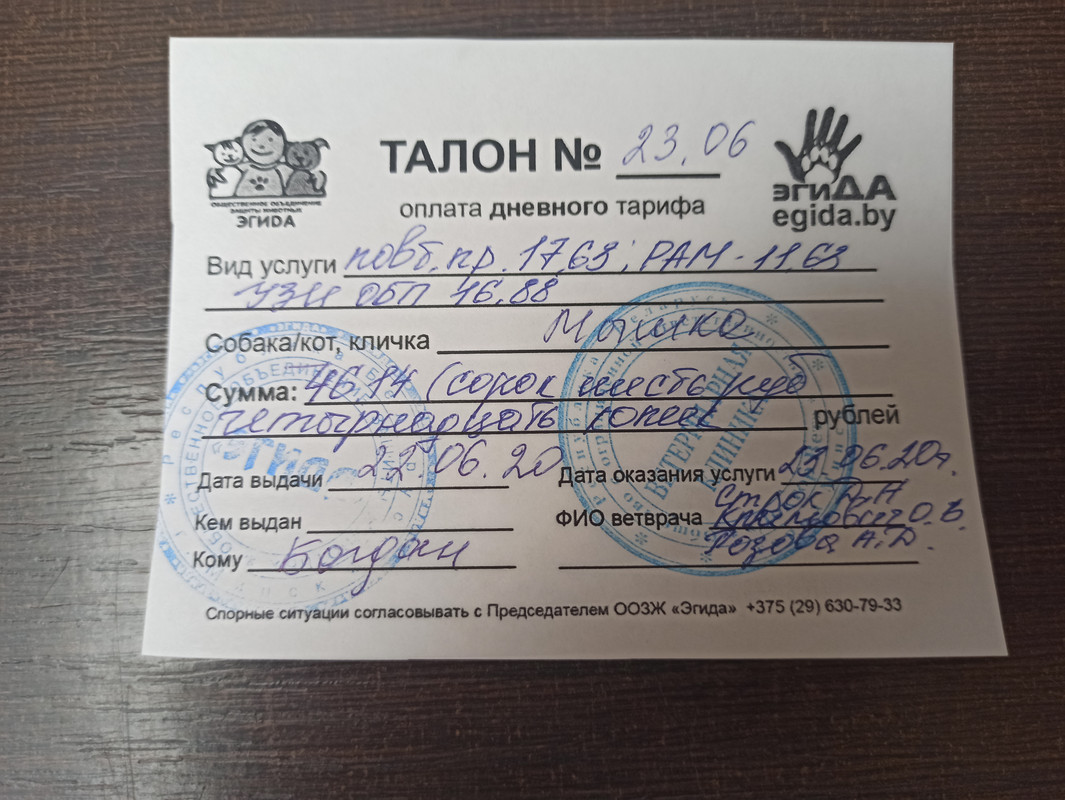 ТАЛОН № 23.06
оплата дневного тарифа
ОБЩЕСТВЕННОЕ ОБЪЕДИНЕНИЕ
ЗАЩИТЫ ЖИВОТНЫХ
ЭГИДА
эгиДА
egida.by
Вид услуги повт.пр. 17,63; РАМ - 11,63
УЗИ ОБП 16,88
Собака/кот, кличка Мышка
Сумма: 46.14 (сорок шесть руб
четырнадцать копеек рублей
Дата выдачи 22.06.20
Дата оказания услуги 22.06.20г.
Кем выдан
ФИО ветврача Строк А.Н
О.В.
Розова А.Д.
Кому Богдан
Спорные ситуации согласовывать с Председателем ООЗЖ «Эгида» +375 (29) 630-79-33
ВЕТЕРИНАРНАЯ
КЛИНИКА
«ЭГИДА»